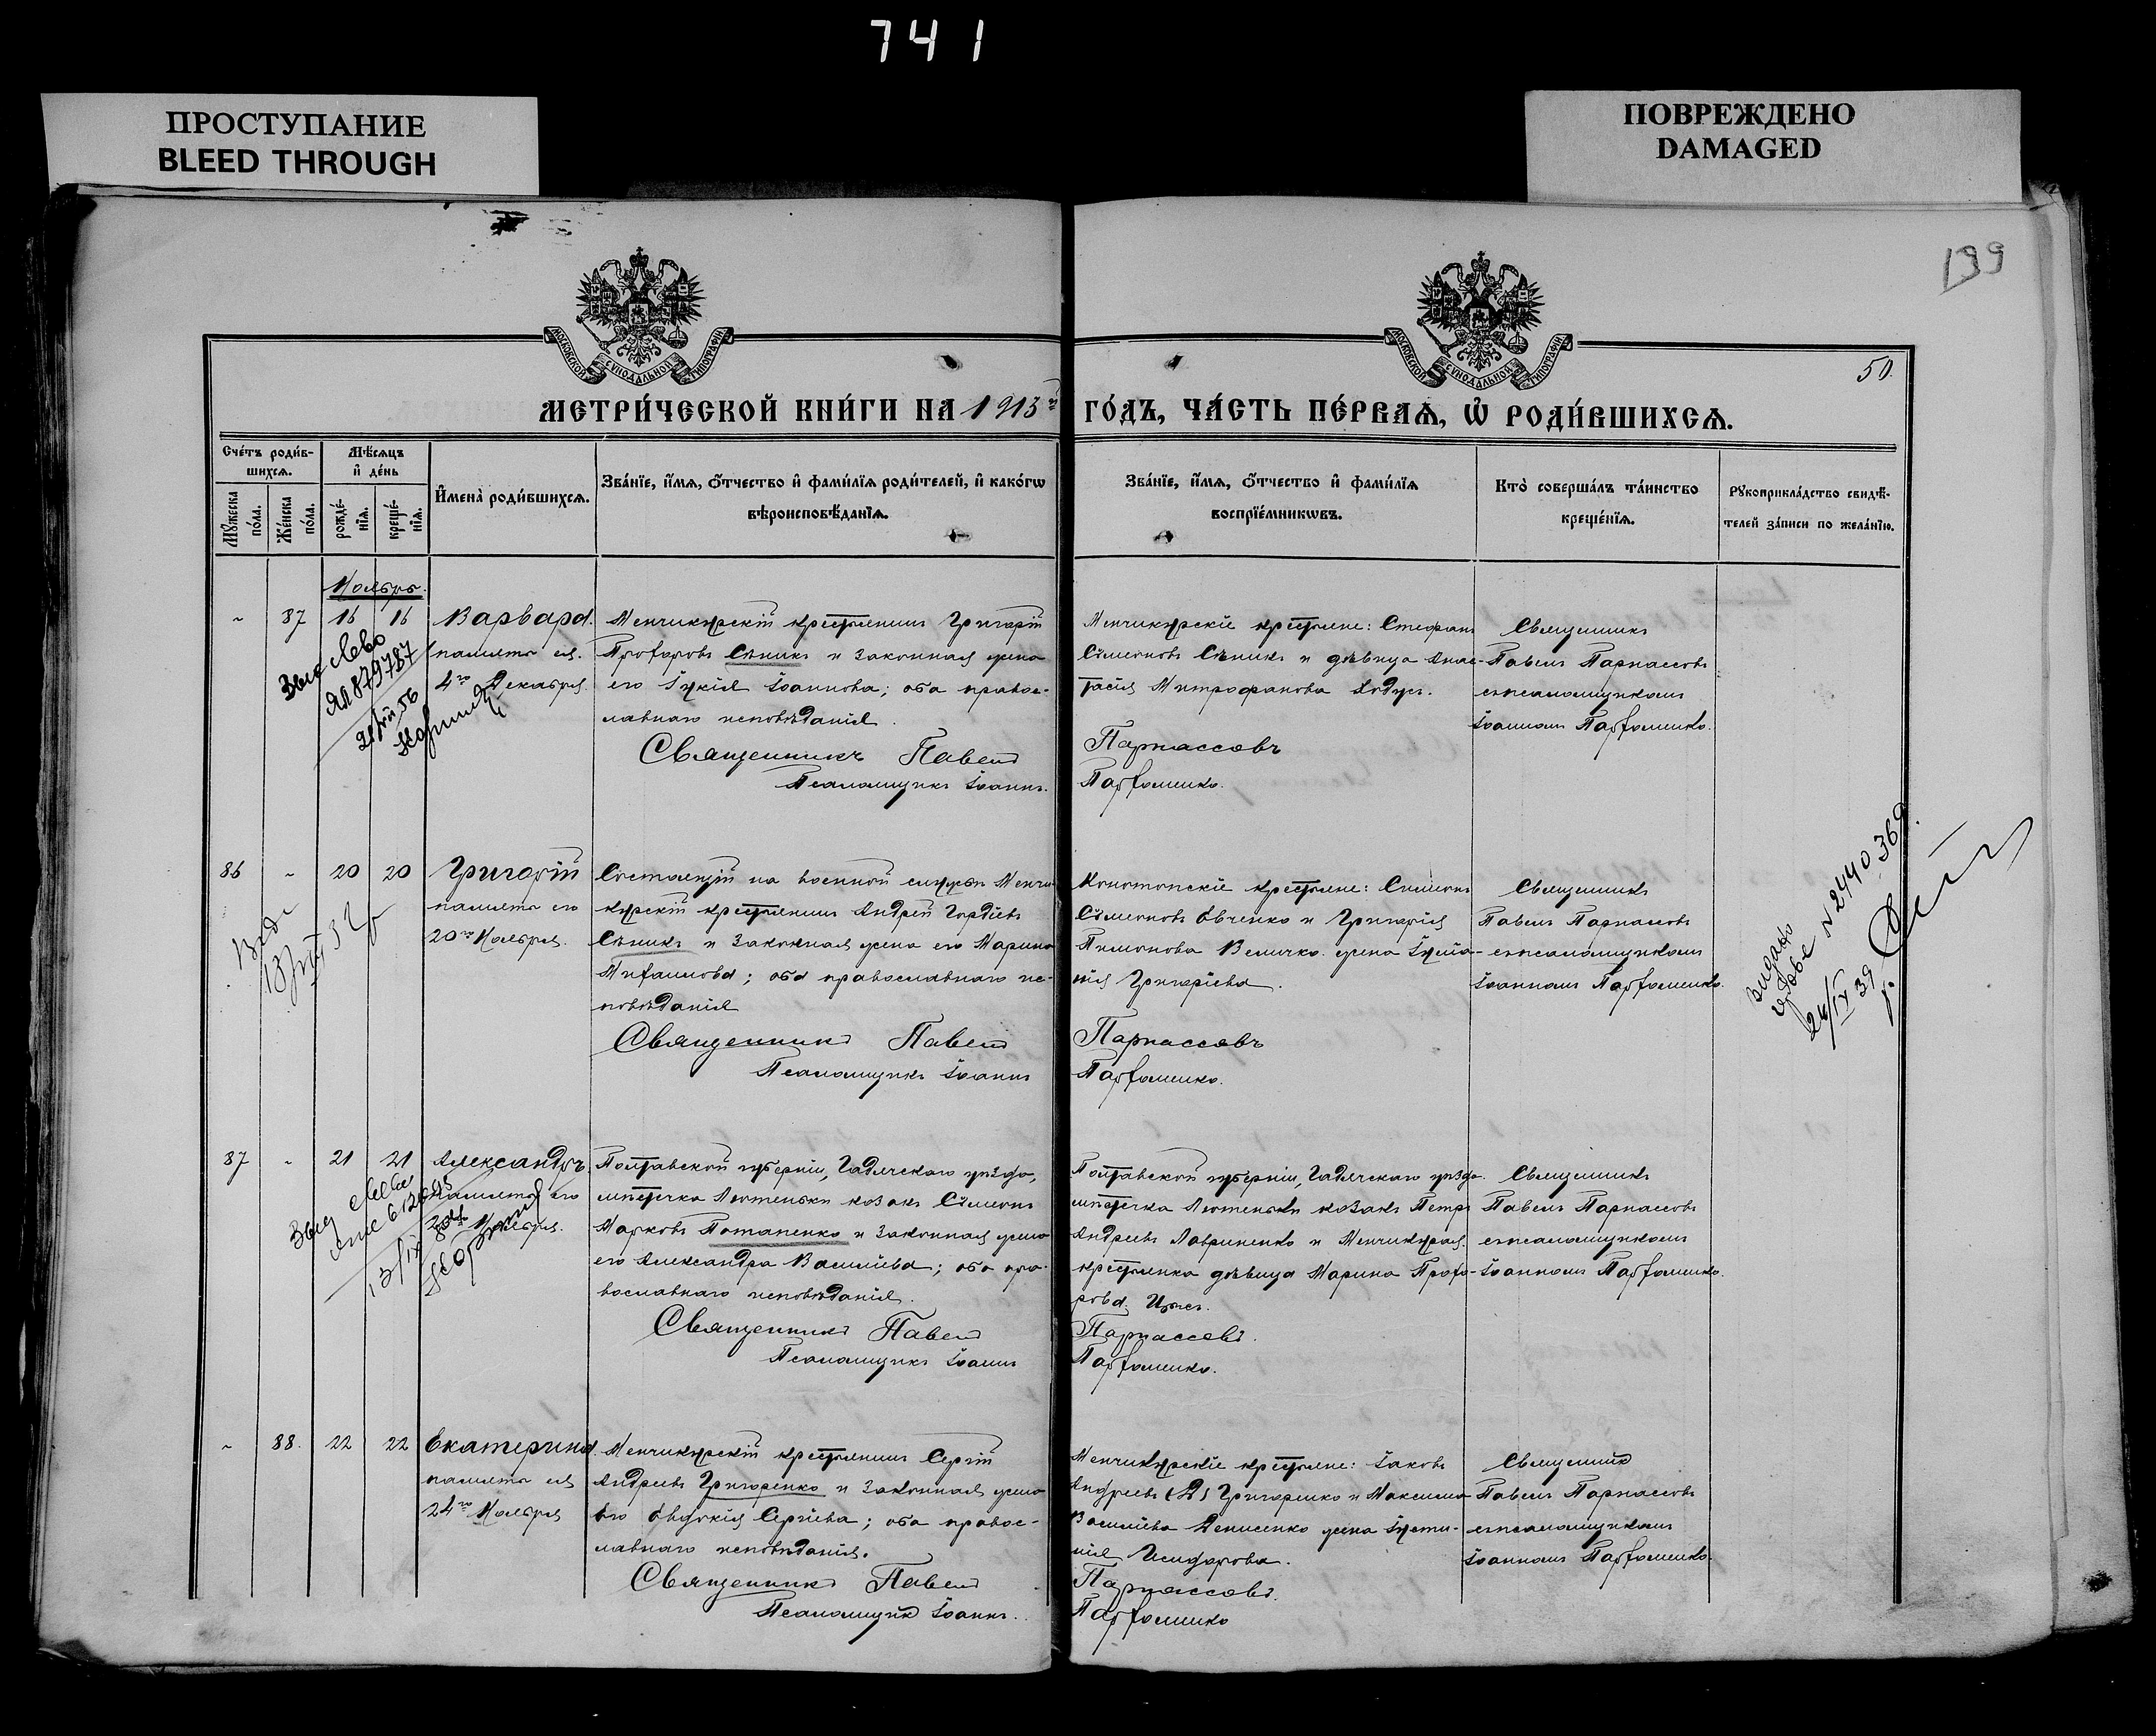 741
ПРОСТУПАНИЕ
BLEED THROUGH
ПОВРЕЖДЕНО
DAMAGED
199
50.
МОСКОВСКОЙ СУНОДАЛЬНОЙ ТИПОГРАФІИ
МОСКОВСКОЙ СУНОДАЛЬНОЙ ТИПОГРАФІИ
МЕТРИ́ЧЕСКОЙ КНИ́ГИ НА 1913й ГО́ДЪ, ЧА́СТЬ ПЕ́РВАѦ, Ѡ҆ РОДИ́ВШИХСѦ.
Сче́тъ роди́в-
шихсѧ.
Мѣ́сяцъ
и҆ де́нь
Мꙋ́жеска
по́ла.
Же́нска
по́ла.
рожде́-
нїѧ.
креще́-
нїѧ.
И҆мена̀ роди́вшихсѧ.
Зва́нїе, и҆́мѧ, ѻ҆́тчество и҆ фами́лїѧ роди́телей, и҆ како́гѡ
вѣроисповѣ́данїѧ.
Зва́нїе, и҆́мѧ, ѻ҆́тчество и҆ фами́лїѧ
воспрїе́мникѡвъ.
Кто̀ соверша́лъ та́инство
креще́нїѧ.
Рꙋкоприкла́дство свидѣ́-
телей за́писи по жела́нїю.
Ноябрь.
~ 87 16 16 Варвара.
память ея
4го Декабря.
Менчикурскій крестьянинъ Григорій
Прохоровъ Сѣникъ и законная жена
его Іулія Іоаннова; оба правос-
лавнаго исповѣданія.
Священникъ Павелъ
Псаломщикъ Іоаннъ.
Менчикурскіе крестьяне: Стефанъ
Сѵмеоновъ Сѣникъ и дѣвица Анас-
тасія Митрофанова
Парнассовъ
Парфоменко.
Священникъ
Павелъ Парнассовъ
съ псаломщикомъ
Іоанномъ Парфоменко.
ЯЛ 879787
86 ~ 20 20 Григорій
память его
20го Ноября.
Состоящій на военной службѣ Менчи-
курскій крестьянинъ Андрей Гордіевъ
Сѣникъ и законная жена его Марина
Михаилова; оба православнаго ис-
повѣданія
Священникъ Павелъ
Псаломщикъ Іоаннъ
Конотопскіе крестьяне: Симеонъ
Сѵмеоновъ Овченко и Григорія
Пимонова Величко жена Іуліа-
нія Григоріева.
Парнассовъ
Парфоменко.
Священникъ
Павелъ Парнассовъ
съ псаломщикомъ
Іоанномъ Парфоменко.
видано
N 2440369.
26/IX 39 р.
87 ~ 21 21 Александръ.
память его
Ноября.
Полтавской губерніи, Гадячскаго уѣзда,
мѣстечка Лютеньки козакъ Сѵмеонъ
Марковъ Потапенко и законная жена
его Александра Васильева; оба пра-
вославнаго исповѣданія.
Священникъ Павелъ
Псаломщикъ Іоаннъ
Полтавской губерніи, Гадячскаго уѣзда
мѣстечка Лютеньки козакъ Петръ
Андреевъ Лавриненко и Менчикурская
крестьянка дѣвица Марина Прохо-
рова
Парнассовъ.
Парфоменко.
Священникъ
Павелъ Парнассовъ
съ псаломщикомъ
Іоанномъ Парфоменко.
~ 88. 22 22 Екатерина.
память ея
24го Ноября
Менчикурскій крестьянинъ Сергій
Андреевъ Григоренко и законная жена
его Евдокія Сергіева; оба правос-
лавнаго исповѣданія.
Священникъ Павелъ
Псаломщикъ Іоаннъ.
Менчикурскіе крестьяне: Іаковъ
Андреевъ (2) Григоренко и Максима
Васильева Денисенко жена Іусти-
нія Исидорова.
Парнассовъ.
Парфоменко
Священникъ
Павелъ Парнассовъ
съ псаломщикомъ
Іоанномъ Парфоменко.